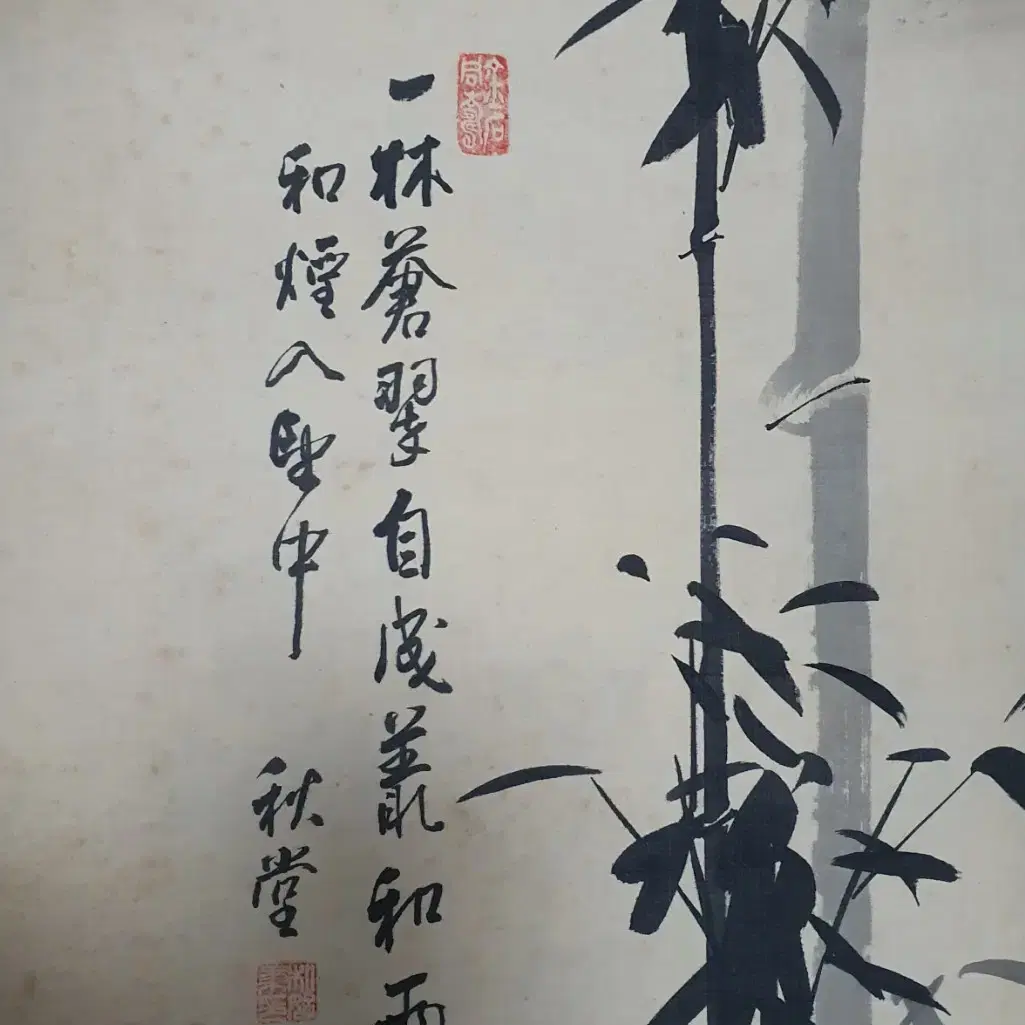 一林蒼翠自成叢和雨
和煙入望中
秋堂